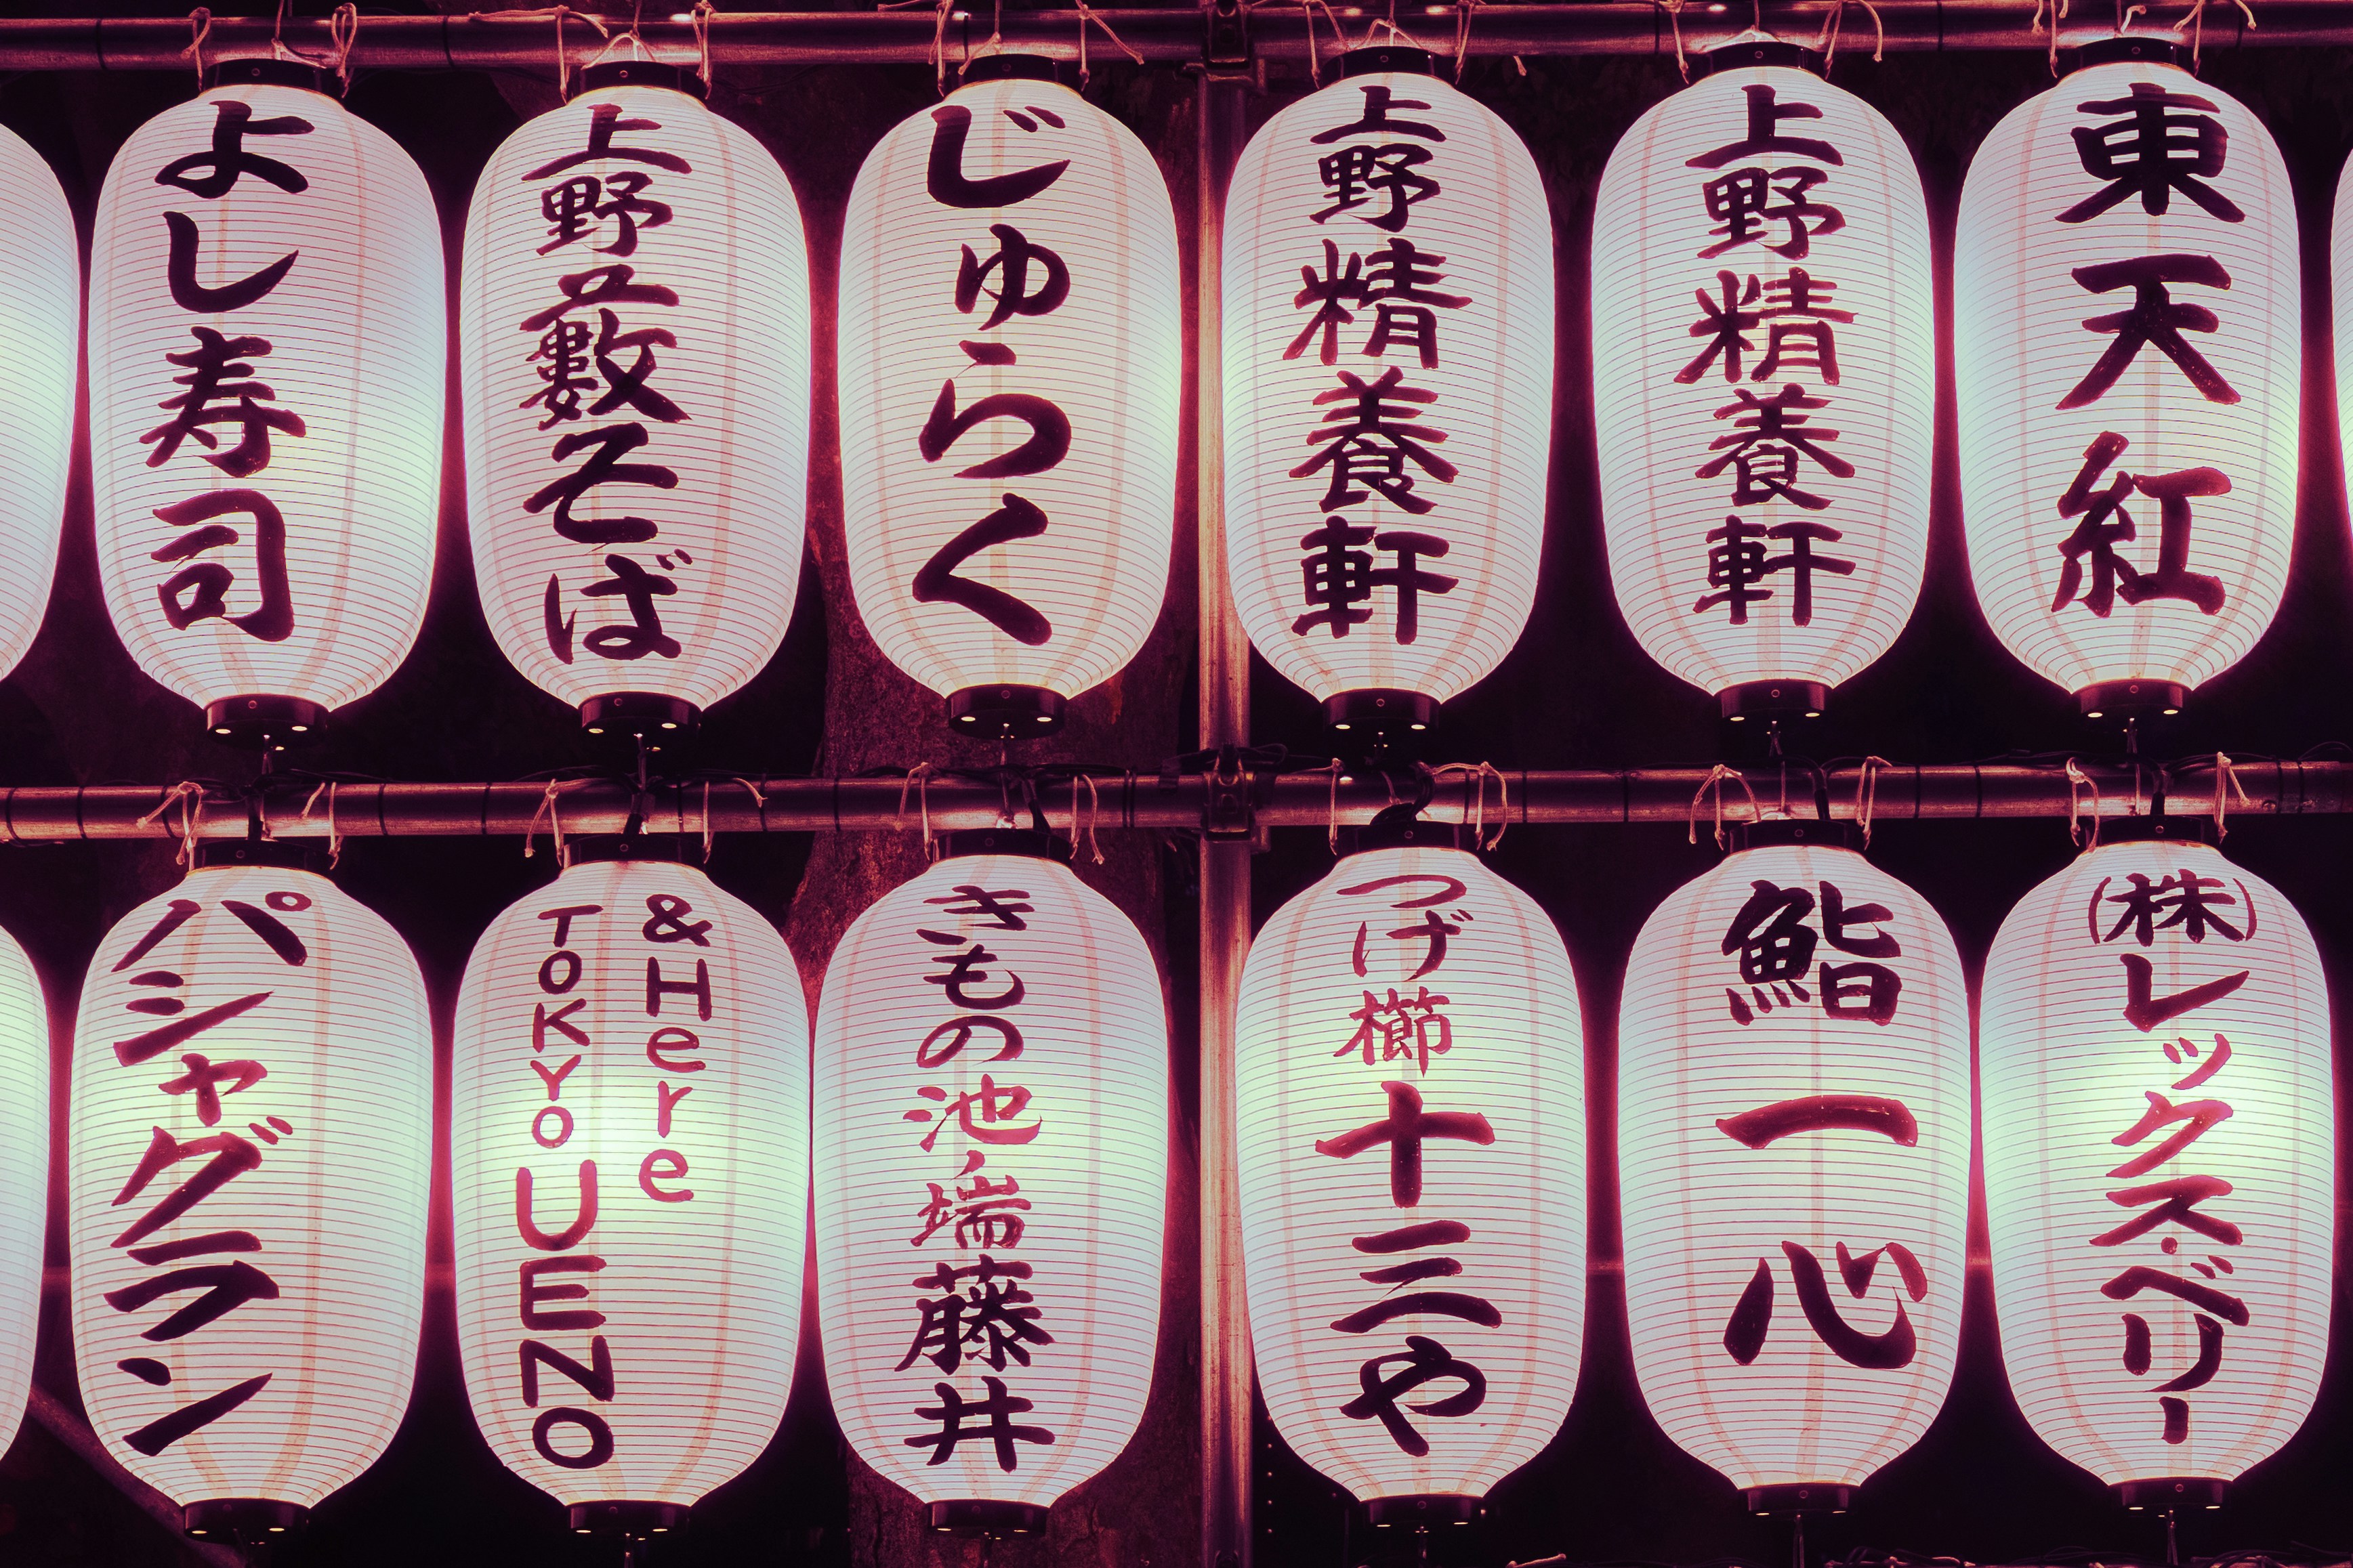 よし寿司
上野藪そば
じゅらく
上野精養軒
上野精養軒
東天紅
パシャグラン
&Here
TOKYO UENO
きもの池之端藤井
つげ櫛十三や
鮨一心
(株)レックス・ベリー